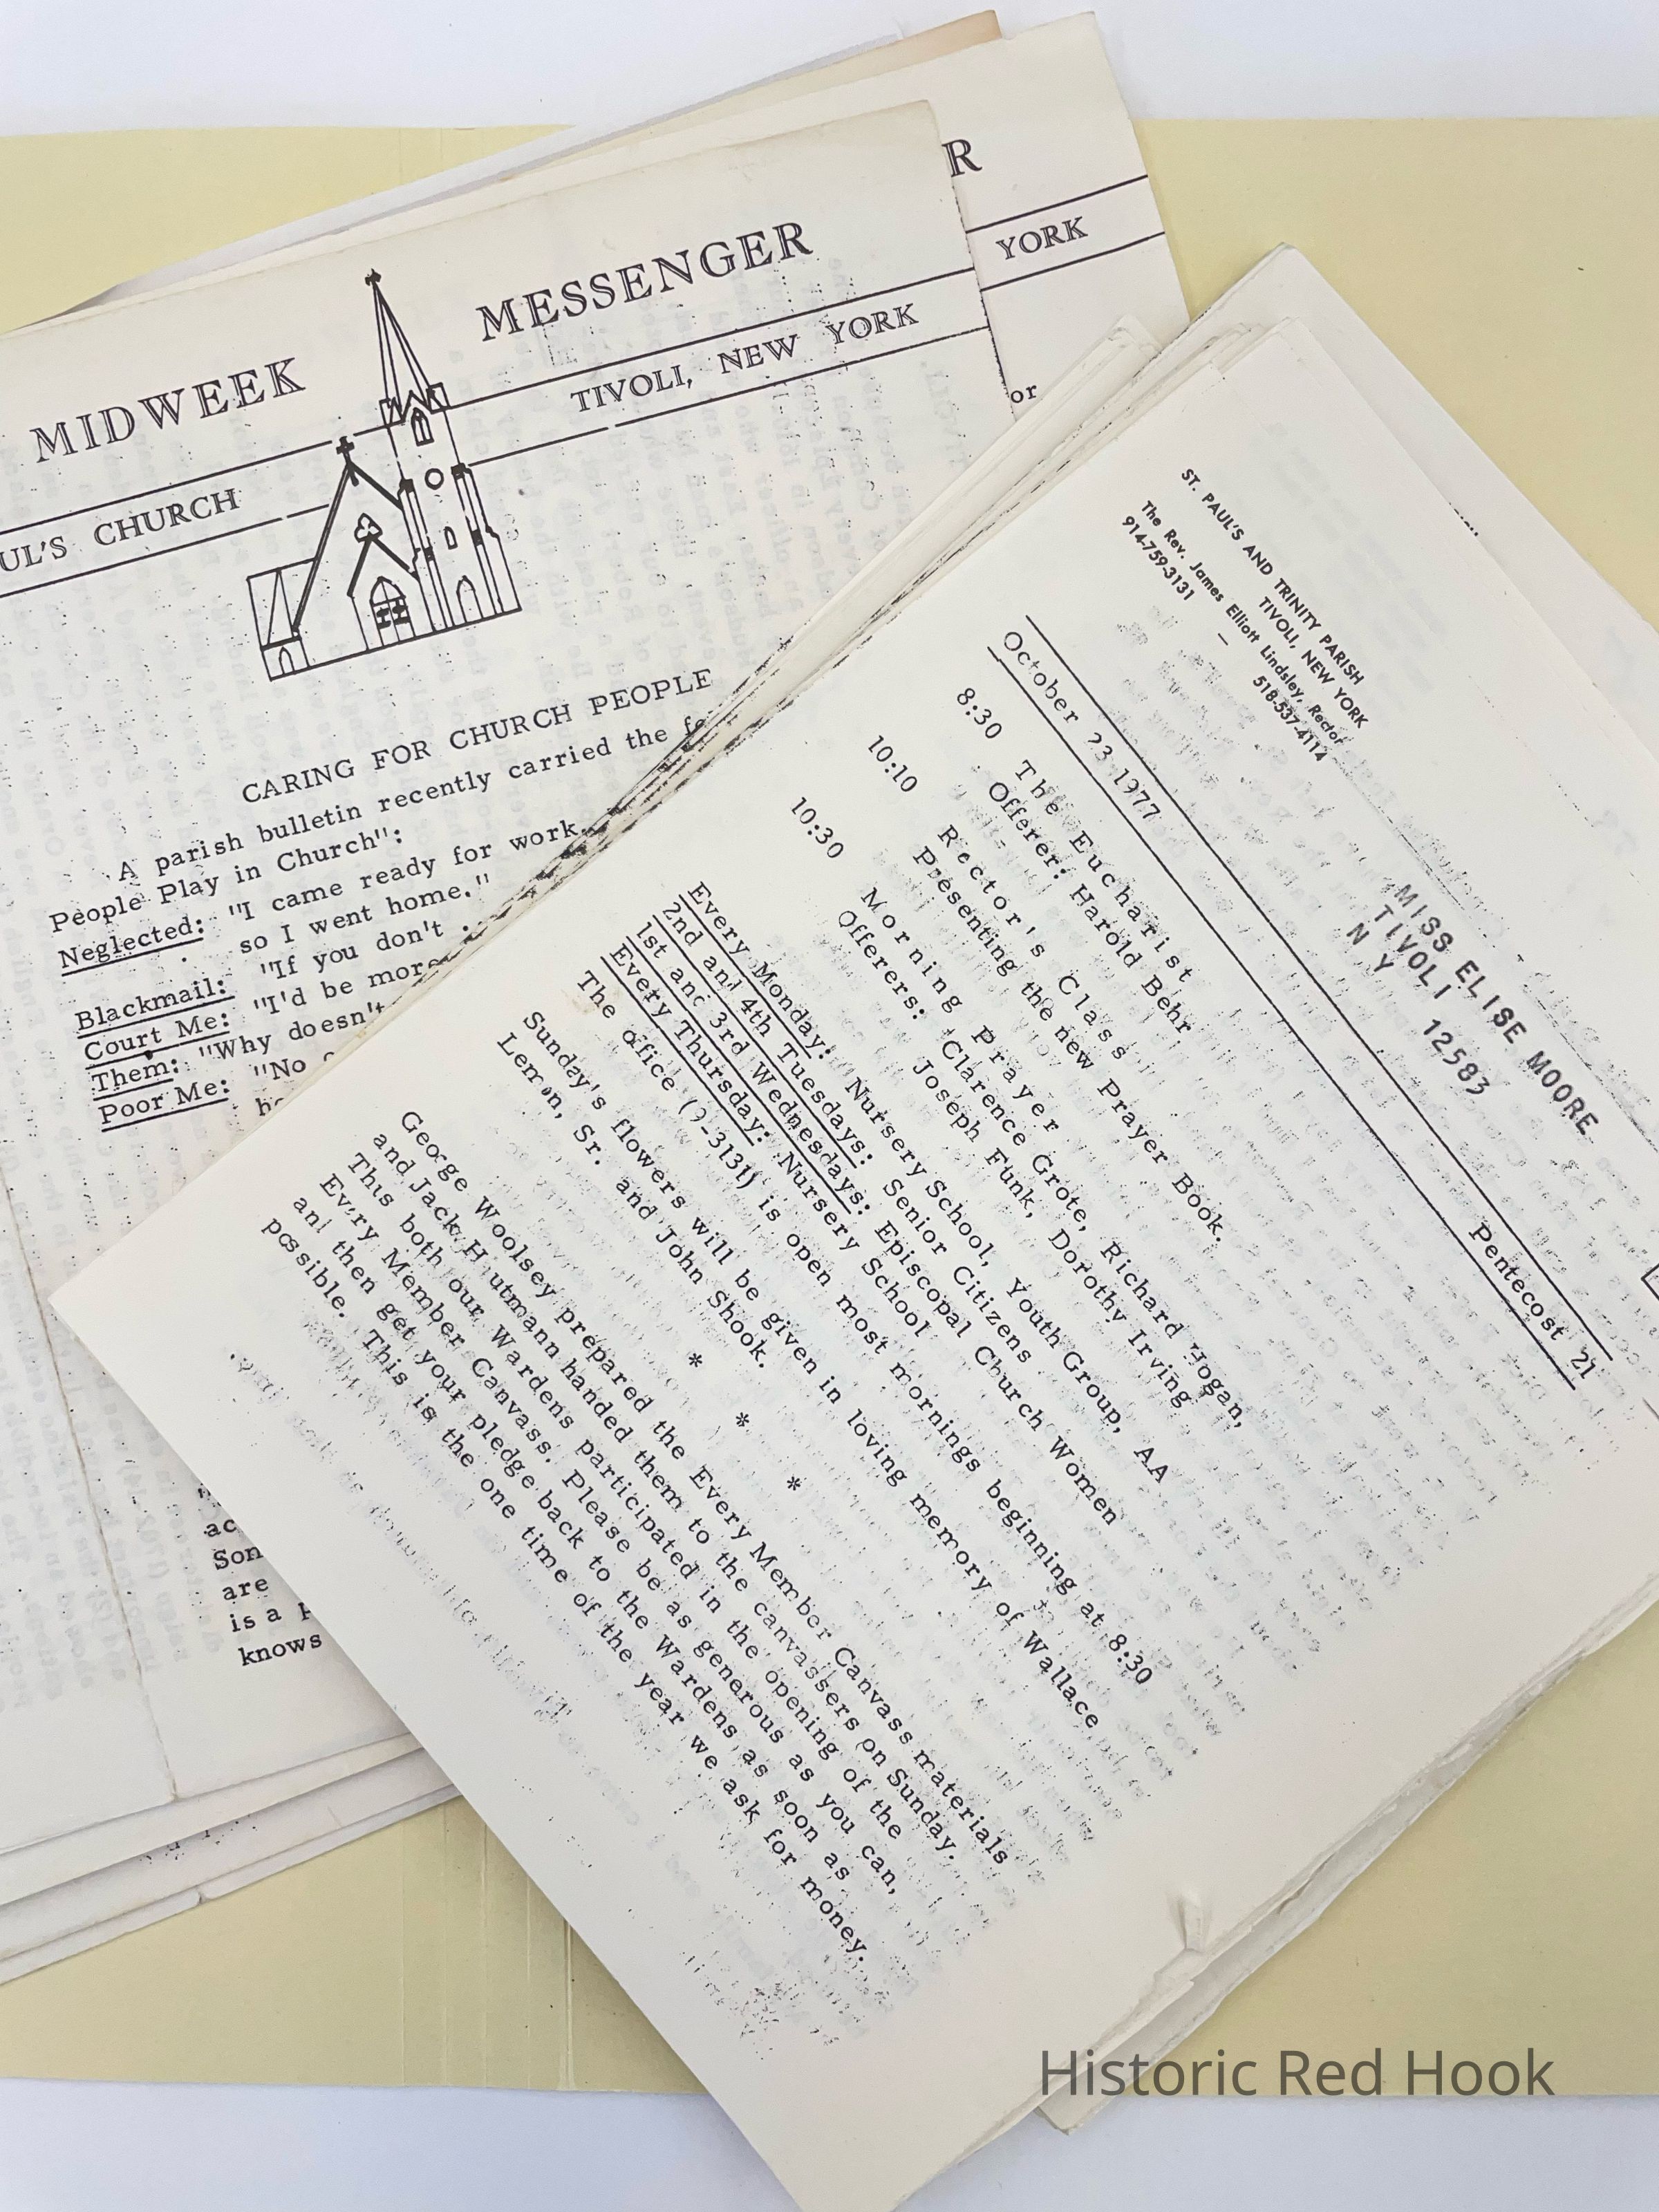 R
YORK
or
MIDWEEK MESSENGER
UL'S CHURCH TIVOLI, NEW YORK
CARING FOR CHURCH PEOPLE
A parish bulletin recently carried the
People Play in Church":
Neglected: "I came ready for work.
so I went home."
"If you don't
Blackmail: "I'd be more
Court Me: "Why doesn't
Them: "No
Poor Me:
ac
Son
are
is a
knows
ST. PAUL'S AND TRINITY PARISH
TIVOLI, NEW YORK
The Rev. James Elliott Lindsley, Rector
914-759-3131 – 518-537-4114
MISS ELISE MOORE
TIVOLI
N Y 12583
October 23 1977 Pentecost 21
8:30 The Eucharist
Offerer: Harold Behr
10:10 Rector's Class
Presenting the new Prayer Book.
10:30 Morning Prayer
Offerers: Clarence Grote, Richard Hogan,
Joseph Funk, Dorothy Irving
Every Monday: Nursery School, Youth Group, AA
2nd and 4th Tuesdays: Senior Citizens
1st and 3rd Wednesdays: Episcopal Church Women
Every Thursday: Nursery School
The office (9-3131) is open most mornings beginning at 8:30
Sunday's flowers will be given in loving memory of Wallace
Lemon, Sr. and John Shook.
* * *
George Woolsey prepared the Every Member Canvass materials
and Jack Hutmann handed them to the canvassers on Sunday.
This both our Wardens participated in the opening of the
Every Member Canvass. Please be as generous as you can,
and then get your pledge back to the Wardens as soon as
possible. This is the one time of the year we ask for money.
Historic Red Hook